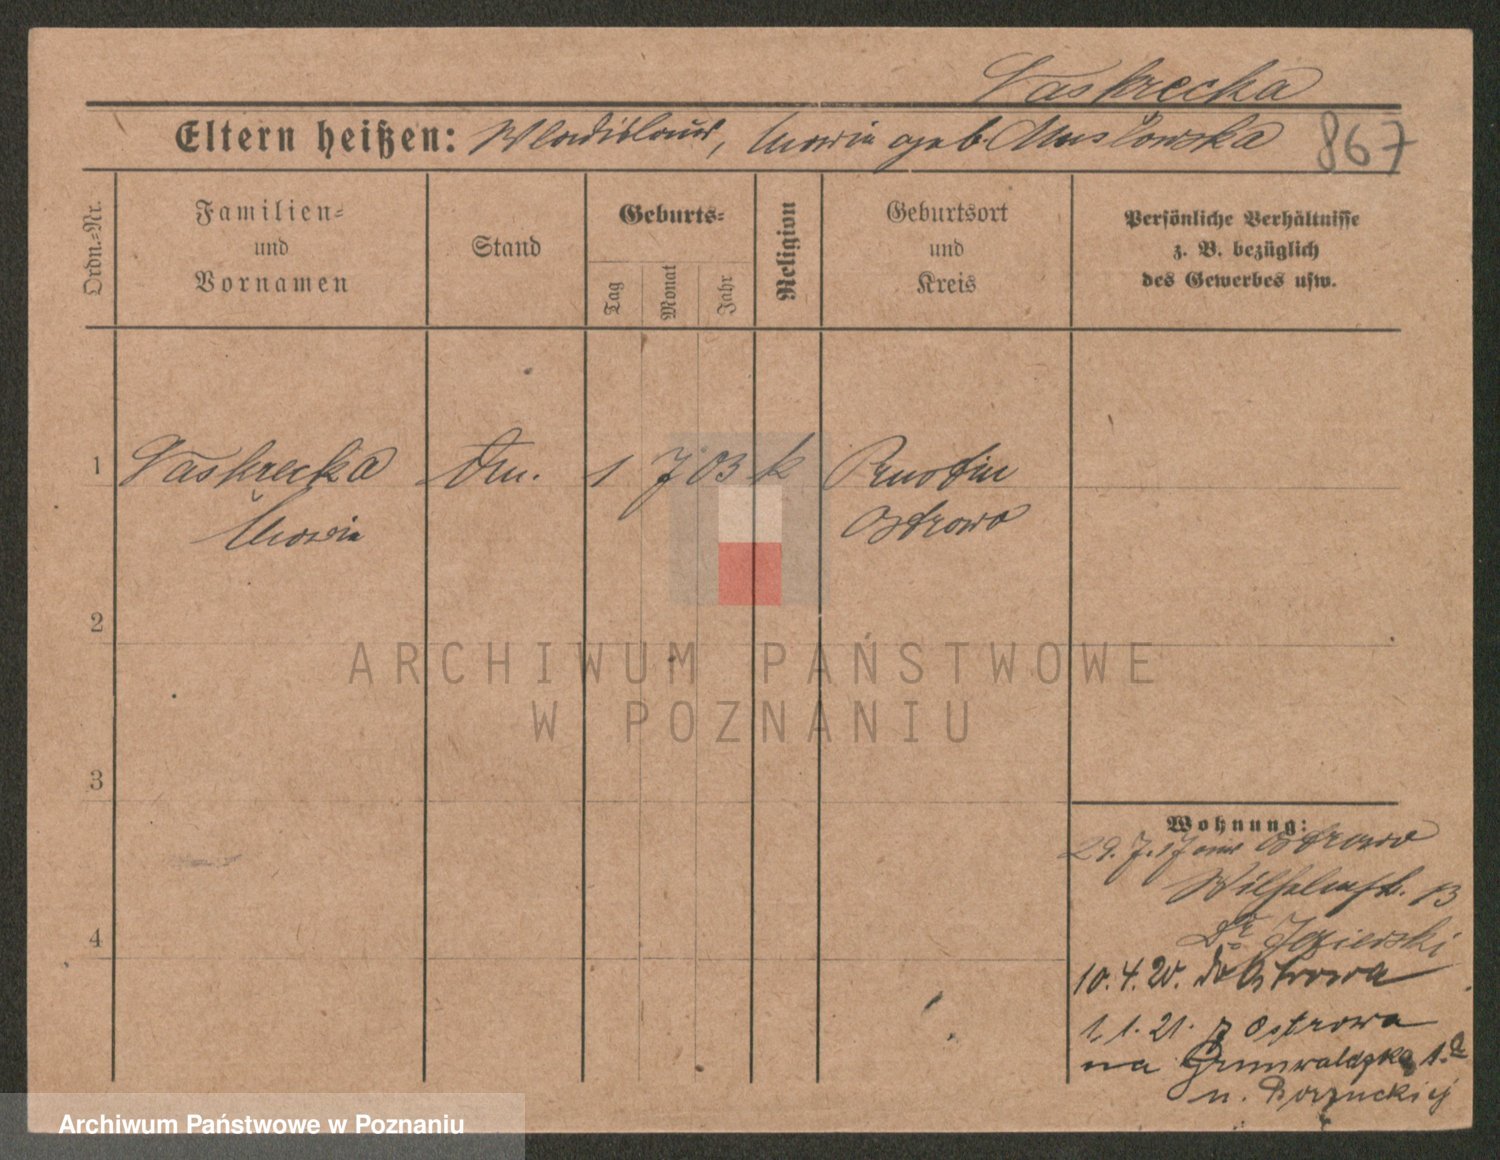 Laskrecka
Eltern heißen: Wladislaus, Maria geb. Muslowska 867
Ordn.-Nr.
Familien-
und
Vornamen
Stand
Geburts-
Tag
Monat
Jahr
Religion
Geburtsort
und
Kreis
Persönliche Verhältnisse
z. B. bezüglich
des Gewerbes usw.
1 Laskrecka 1 7 03 k
Maria Ostrowo
2
3
4
Wohnung:
29. 7. 17 aus Ostrowo
Wilhelmstr. 13
Dr Jezierski
10. 4. 20. do Ostrowa
1. 1. 21. z Ostrowa
na Grunwaldzka 1.a
u. Borzuckiej
ARCHIWUM PAŃSTWOWE
W POZNANIU
Archiwum Państwowe w Poznaniu